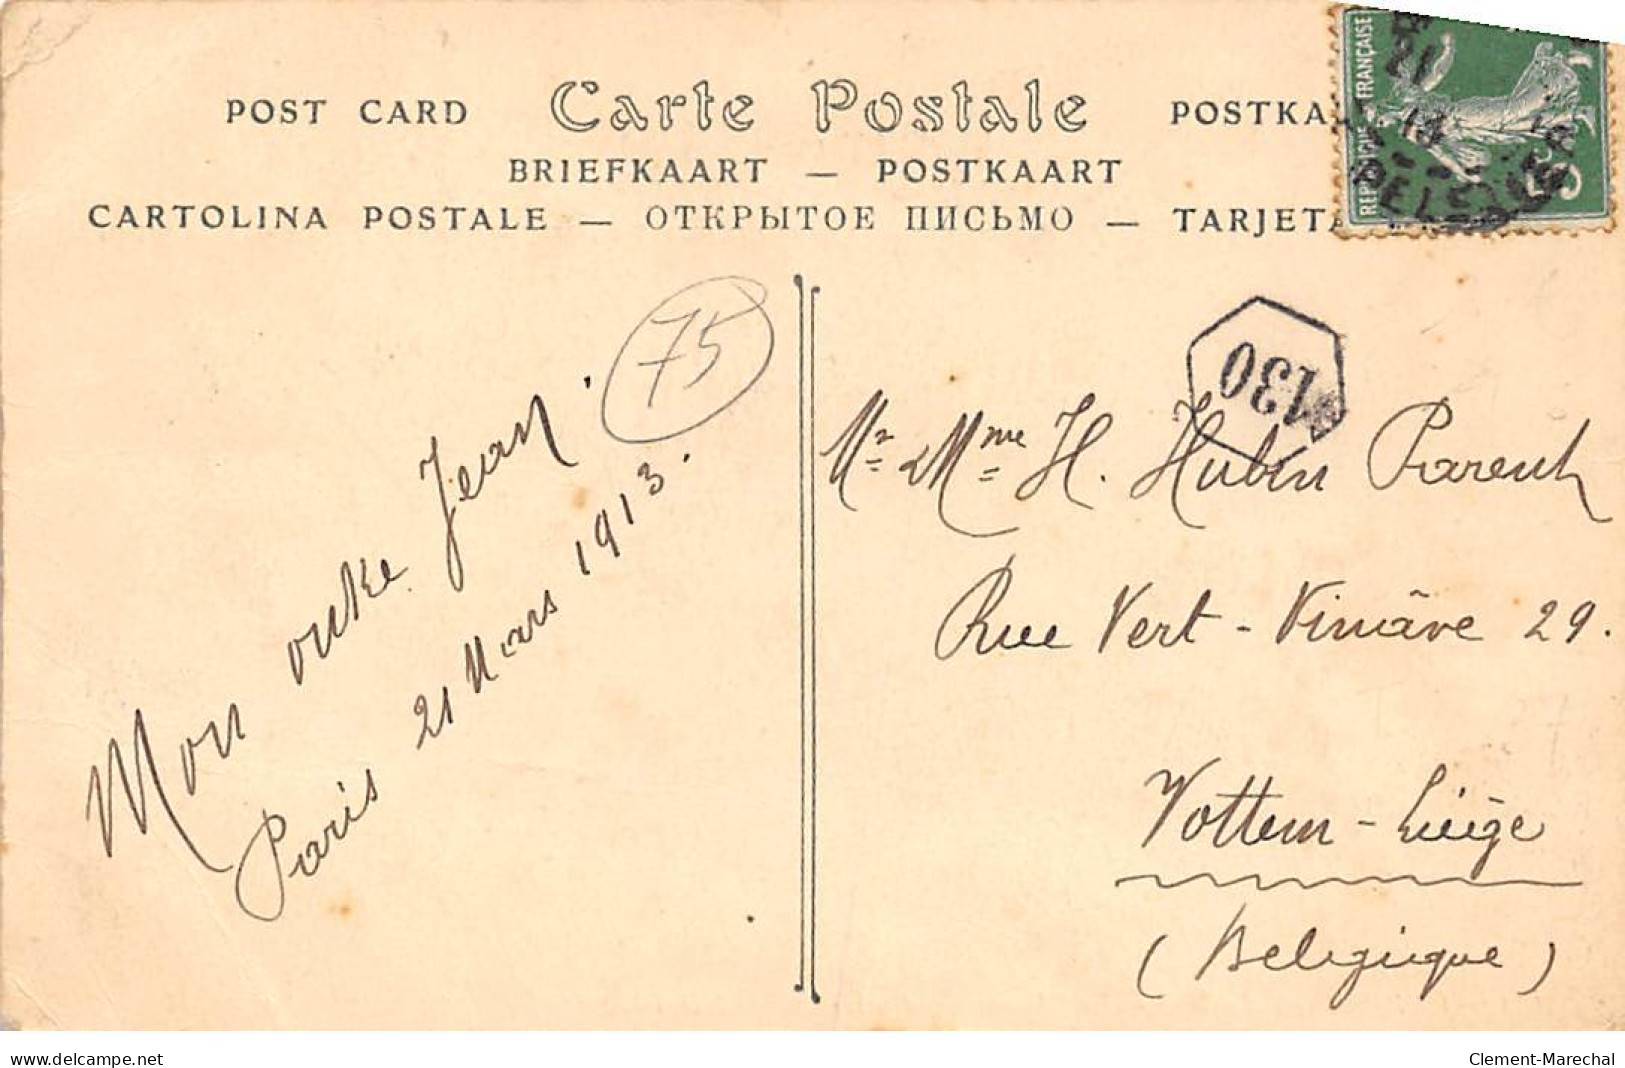 POST CARD Carte Postale POSTKA
BRIEFKAART — POSTKAART
CARTOLINA POSTALE — ОТКРЫТОЕ ПИСЬМО — TARJETA
REPUBLIQUE FRANÇAISE
5c
75
130
Mon Jean.
Paris 21 Mars 1913.
Mr & Mme H. Hubin Parent
Rue Vert-Vinâve 29.
Vottem-Liège
(Belgique)
www.delcampe.net
Clement-Marechal